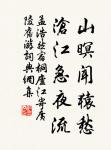 山暝聞猿愁
滄江急夜流
孟浩然宿桐廬江寄廣
陵舊游詞典網集